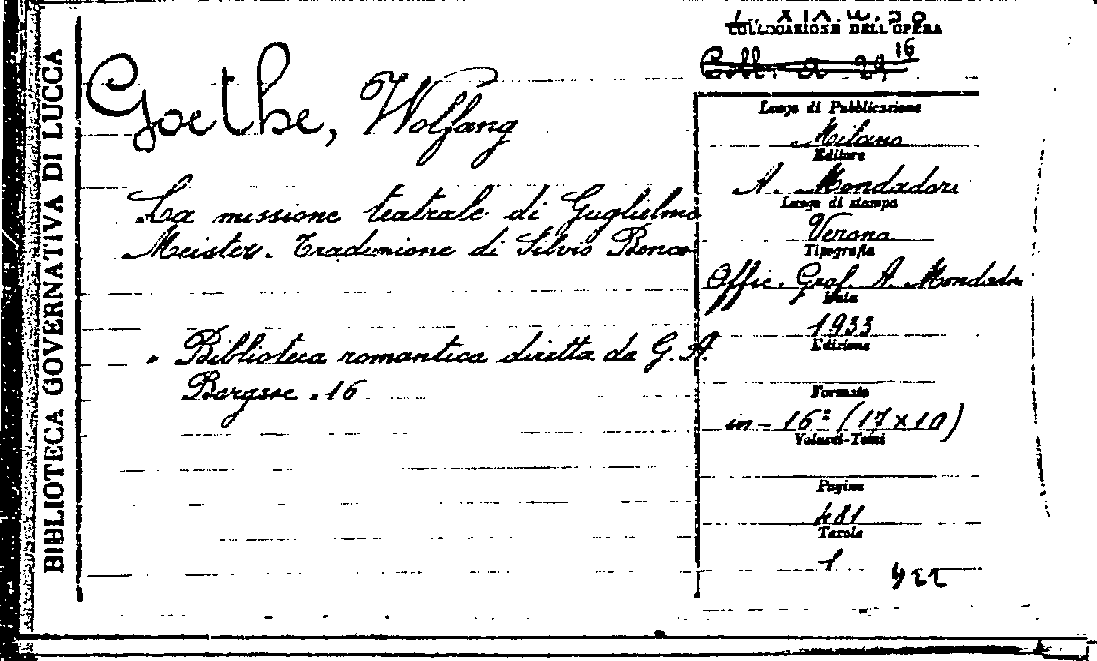 BIBLIOTECA GOVERNATIVA DI LUCCA
COLLOCAZIONE DELL'OPERA
Coll. A 29 16
Goethe, Wolfang
La missione teatrale di Guglielmo
Meister. Traduzione di Silvio Benco
" Biblioteca romantica diretta da G. A.
Borgese. 16
Luogo di Pubblicazione
Milano
Editore
A. Mondadori
Luogo di stampa
Verona
Tipografia
Offic. Graf. A. Mondadori
Data
1933
Edizione
Formato
in-16º (17x10)
Volumi-Tomi
Pagine
481
Tavole
1